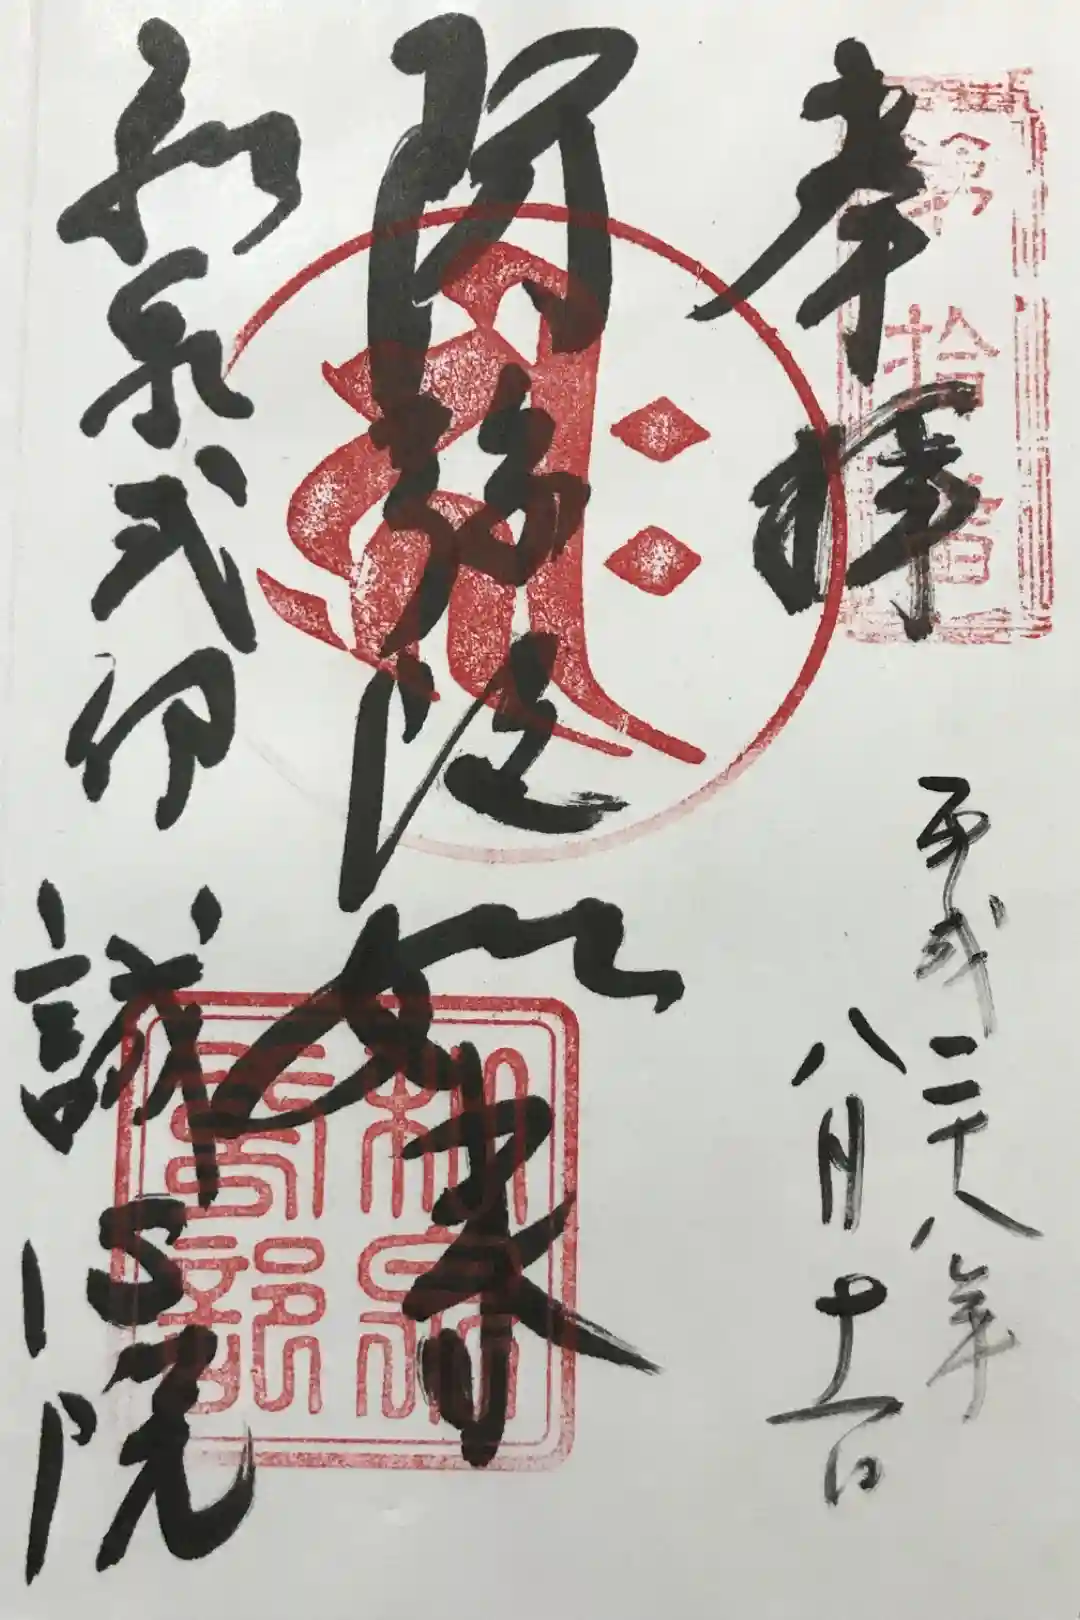 奉拝
第拾
平成二十八年
八月十一日
阿弥陀如来
和泉式部
和泉式部
誠心院